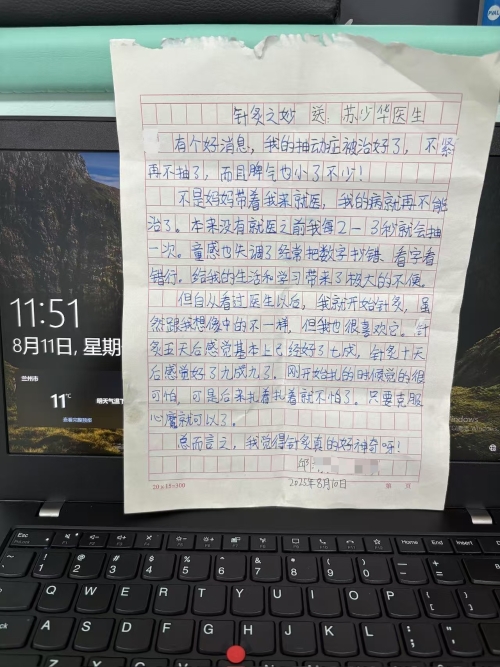 针灸之妙 送:苏少华医生
有个好消息,我的抽动症被治好了,不紧
再不抽了,而且脾气也小了不少!
不是妈妈带着我来就医,我的病就再不能
治了。本来没有就医之前我每2-3秒就会抽
一次。童感也失调了经常把数字抄错、看字看
错行,给我的生活和学习带来了极大的不便。
但自从看过医生以后,我就开始针灸,虽
然跟我想像中的不一样,但我也很喜欢它。针
灸五天后感觉基本上已经好了七成,针灸十天
后感觉好了九成九了。刚开始扎的时候觉的很
可怕,可是后来扎着扎着就不怕了。只要克服
心魔就可以了。
总而言之,我觉得针灸真的好神奇呀!
邱
2025年8月10日
20×15=300 第 页
11:51
8月11日, 星期
兰州市
11℃
明天气温下
Windows
Esc F1 F2 F3 F4 F5 F6 F7 F8 F9 F10 F11 F12 Home End Insert
~ ! @ # $ % ^ & * ( ) _ +
1 2 3 4 5 6 7 8 9 0 - =
Q W E R T Y U I O P { [
A S D F G H J K L : ;